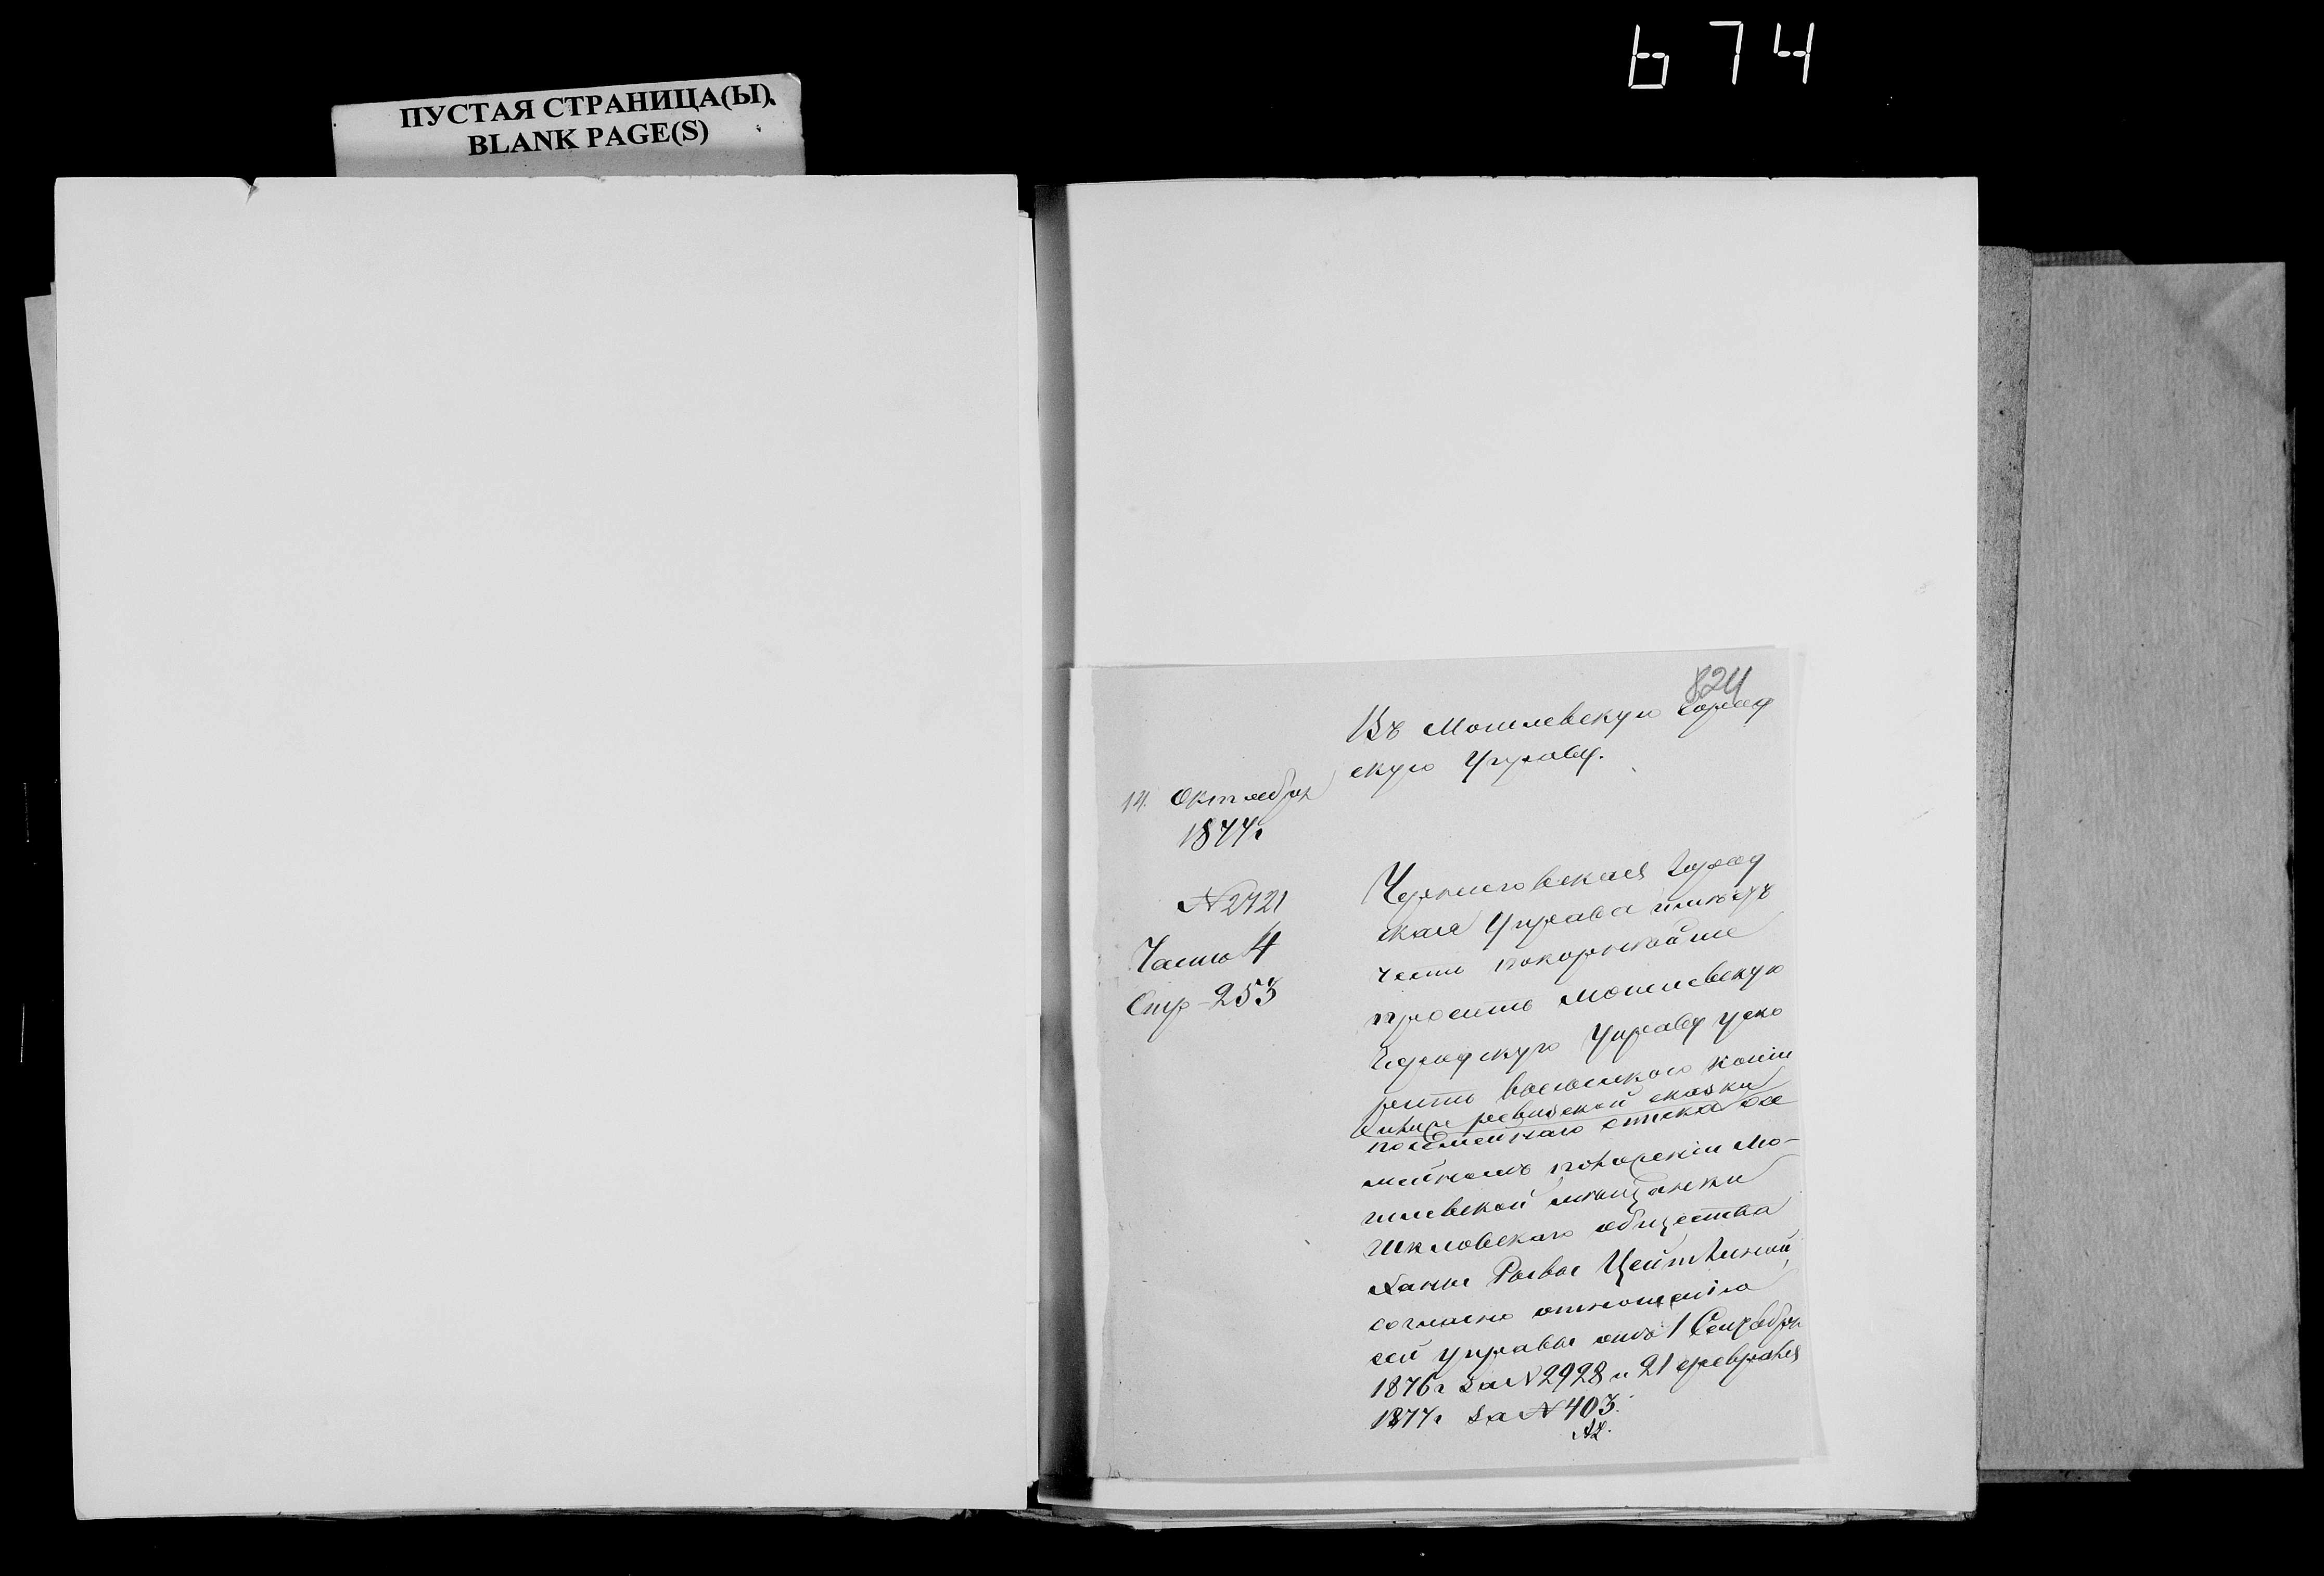 674
ПУСТАЯ СТРАНИЦА(Ы).
BLANK PAGE(S)
824
Въ Могилевскую город
скую Управу.
14. Октября
1877г
№2721
Часть 4
Стр-253
Черниговская Город
ская Управа имѣетъ
честь покорнѣйше
просить Могилевскую
Городскую Управу уско
рить высылкою копіи
съ ревизской сказки
посемейнаго списка о се
мейномъ положеніи Мо-
гилевской мѣщанки
Шкловскаго общества
Ханы Рывы Цейтлиной,
согласно отношенію
сей управы отъ 1 Сентября
1876г за №2928 и 21 февраля
1877г за №403.